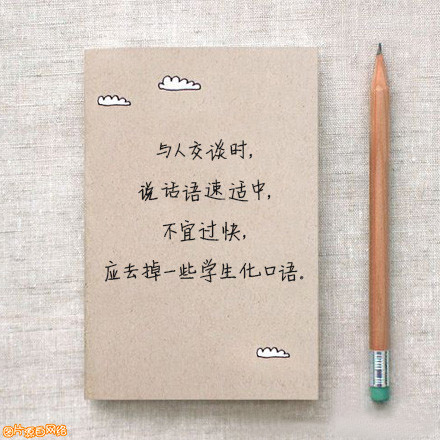 与人交谈时，
说话语速适中，
不宜过快，
应去掉一些学生化口语。
图片来自网络